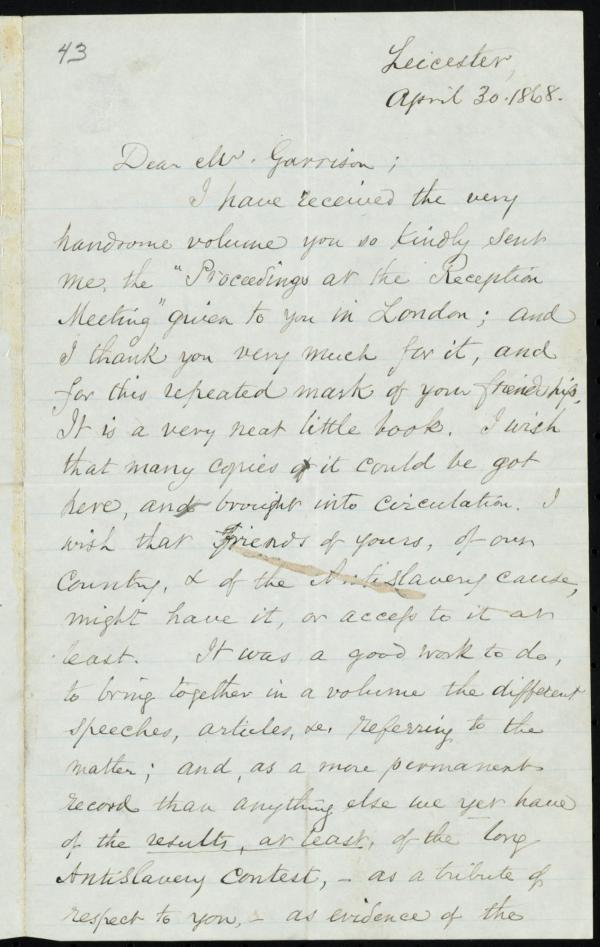 43
Leicester,
April 30. 1868.
Dear Mr. Garrison;
I have received the very
handsome volume you so kindly sent
me, the "Proceedings at the Reception
Meeting" given to you in London; and
I thank you very much for it, and
for this repeated mark of your friendship.
It is a very neat little book. I wish
that many copies of it could be got
here, and brought into circulation. I
wish that friends of yours, of our
Country, & of the Antislavery cause,
might have it, or access to it at
least. It was a good work to do,
to bring together in a volume the different
speeches, articles, &c. referring to the
matter; and, as a more permanent
record than anything else we yet have
of the results, at least, of the long
Antislavery Contest, – as a tribute of
respect to you, – as evidence of the